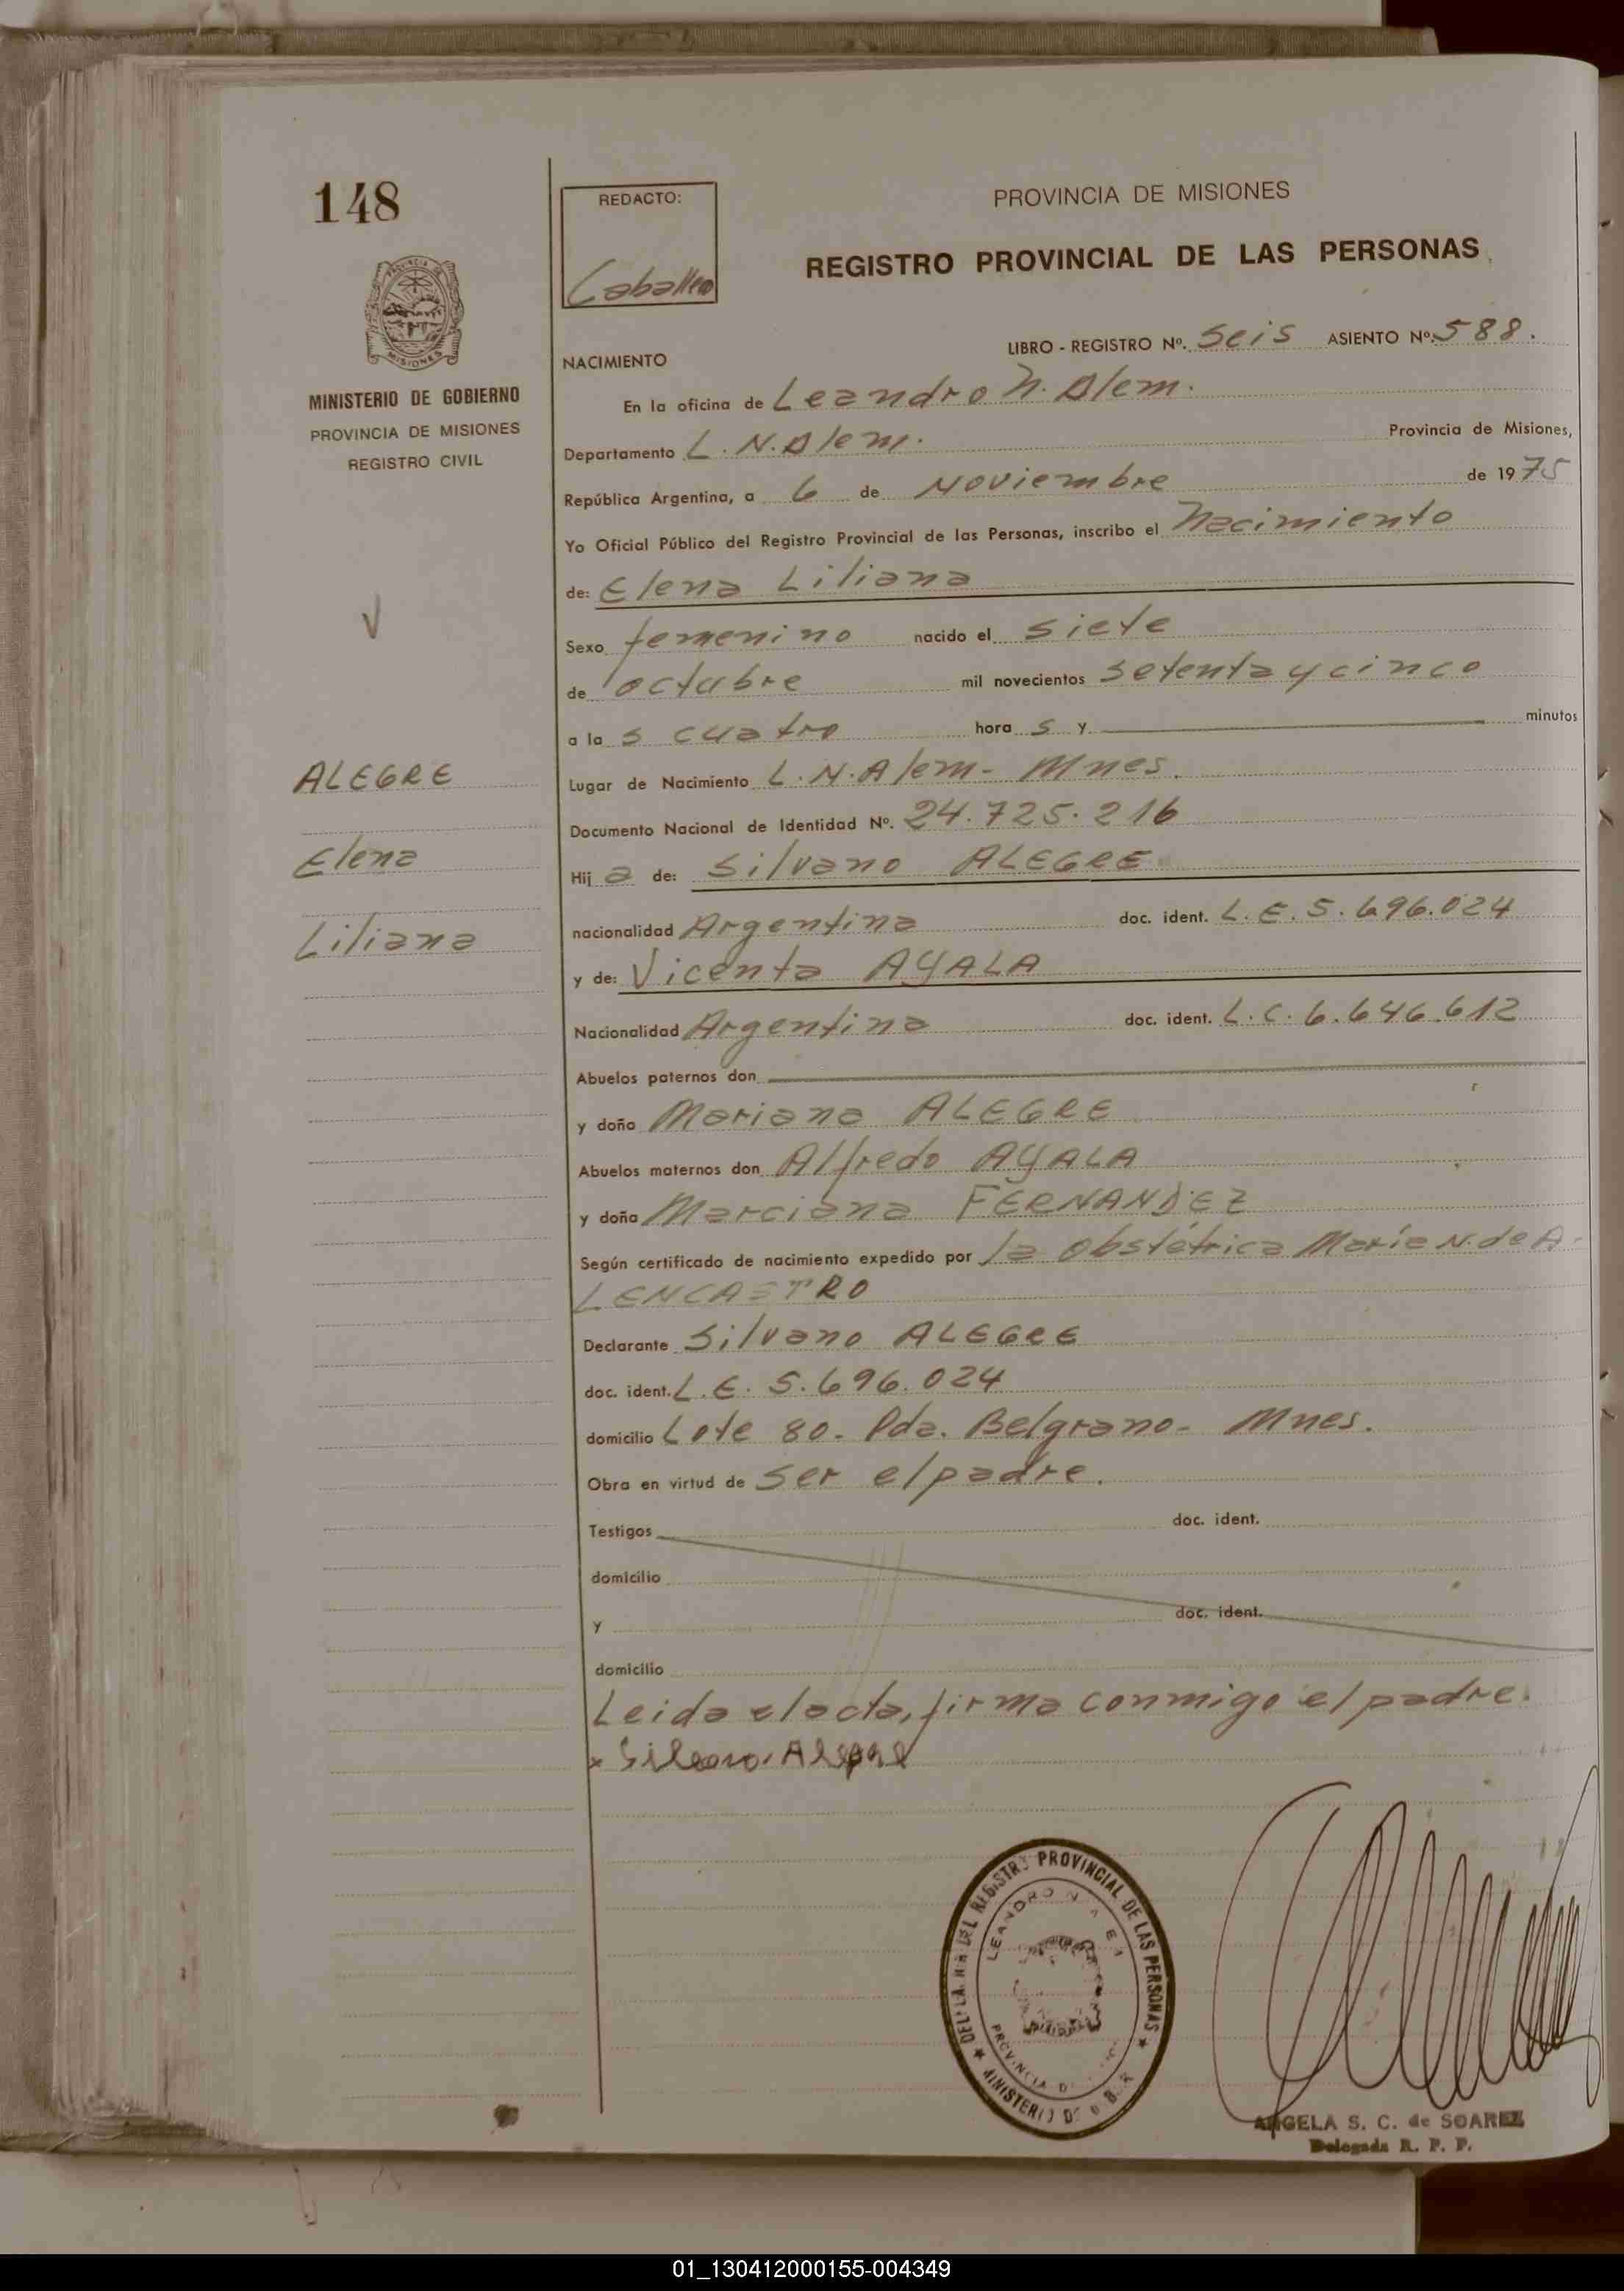 148
REDACTO:
Caballero
PROVINCIA DE MISIONES
REGISTRO PROVINCIAL DE LAS PERSONAS
PROVINCIA DE
MISIONES
MINISTERIO DE GOBIERNO
PROVINCIA DE MISIONES
REGISTRO CIVIL
NACIMIENTO
LIBRO - REGISTRO Nº. Seis ASIENTO Nº. 588.
En la oficina de Leandro N. Alem.
Departamento L. N. Alem. Provincia de Misiones,
República Argentina, a 6 de Noviembre de 1975
Yo Oficial Público del Registro Provincial de las Personas, inscribo el Nacimiento
de: Elena Liliana
Sexo femenino nacido el siete
de octubre mil novecientos setenta y cinco
a la s cuatro hora s y minutos
ALEGRE
Elena
Liliana
Lugar de Nacimiento L. N. Alem - Mnes.
Documento Nacional de Identidad Nº. 24.725.216
Hij a de: Silvano ALEGRE
nacionalidad Argentina doc. ident. L. E. 5.696.024
y de: Vicenta AYALA
Nacionalidad Argentina doc. ident. L. C. 6.646.612
Abuelos paternos don
y doña Mariana ALEGRE
Abuelos maternos don Alfredo AYALA
y doña Marciana FERNANDEZ
Según certificado de nacimiento expedido por la obstétrica María N. de A-
LENCASTRO
Declarante Silvano ALEGRE
doc. ident. L. E. 5.696.024
domicilio Lote 80 - Pda. Belgrano - Mnes.
Obra en virtud de ser el padre.
Testigos doc. ident.
domicilio
y doc. ident.
domicilio
Leida el acta, firma conmigo el padre.
x Silvano Alegre
REGISTRO PROVINCIAL DE LAS PERSONAS
LEANDRO N. ALEM
PROVINCIA DE
MINISTERIO DE GOB
ANGELA S. C. de SOAREZ
Delegada R. P. P.
01_130412000155-004349